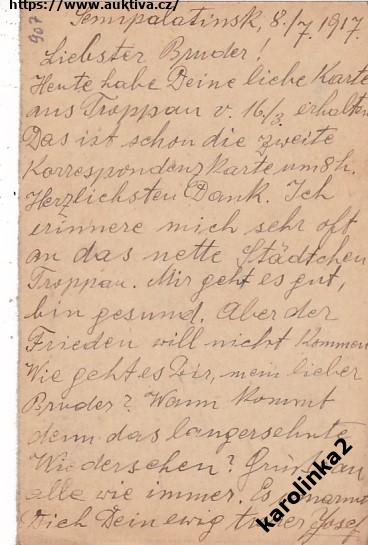 https://www.auktiva.cz/
907
Semipalatinsk, 8./7. 1917.
Liebster Bruder!
Heute habe Deine liebe Karte
aus Troppau v. 16/3. erhalten
Das ist schon die zweite
Korrespondenzkarte um 8h.
Herzlichsten Dank. Ich
erinnere mich sehr oft
an das nette Städtchen
Troppau. Mir geht es gut,
bin gesund. Aber der
Frieden will nicht kommen
Wie geht es Dir, mein lieber
Bruder? Wann kommt
denn das langersehnte
Wiedersehen?
alle wie immer. Es
Dich Dein ewig Josef
karolinka2